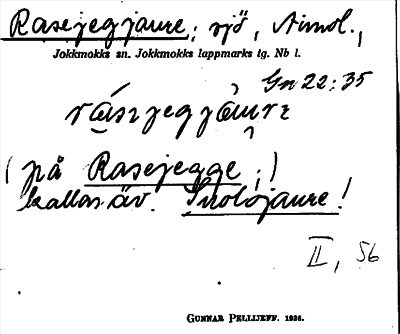 Rasejegjaure; sjö, Aimol.,
Jokkmokks sn. Jokkmokks lappmarks tg. Nb l.
Gn 22:35
(på Rasejegge;)
kallas äv. Snolojaure!
II, 56
GUNNAR PELLIJEFF. 1936.